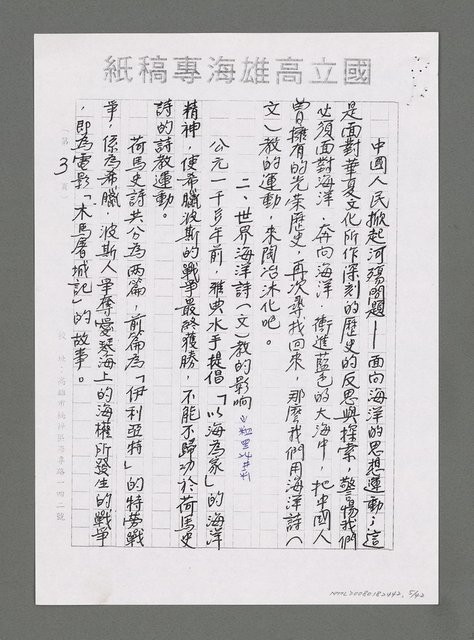 國立高雄海專稿紙
中國人民掀起河殤問題——面向海洋的思想運動；這
是面對華夏文化所作深刻的歷史的反思與探索，警惕我們
必須面對海洋，奔向海洋，衝進藍色的大海中，把中國人
曾擁有的光榮歷史，再次尋找回來，那麼我們用海洋詩（
文）教的運動，來陶冶沐化吧。
二、世界海洋詩（文）教的影响
公元一千多年前，雅典水手提倡「以海為家」的海洋
精神，使希臘波斯的戰爭最終獲勝，不能不歸功於荷馬史
詩的詩教運動。
荷馬史詩共分為兩篇，前篇為「伊利亞特」的特勞戰
爭，係為希臘，波斯人爭奪愛琴海上的海權所發生的戰爭
，即為電影「木馬屠城記」的故事。
（第 3 頁）
校址：高雄市楠梓區海專路一四二號
NML20080182442, 5/42